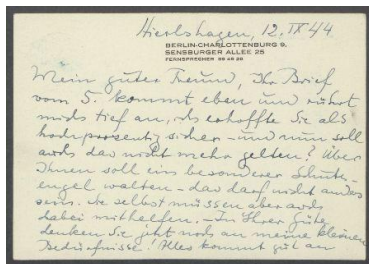 Hierlshagen, 12. IX 44
BERLIN-CHARLOTTENBURG 9,
SENSBURGER ALLEE 25
FERNSPRECHER 99 46 29
Mein guter Freund, Ihr Brief
vom 5. kommt eben und rührt
mich tief an, ich erhoffte Sie als
hochprozentig sicher - und nun soll
auch das nicht mehr gelten? Über
Ihnen soll ein besonderer Schutz-
engel walten - das darf nicht anders
sein. Sie selbst müssen aber auch
dabei mithelfen. - In Ihrer Güte
denken Sie jetzt noch an meine kleinen
Bedürfnisse! Alles kommt gut an